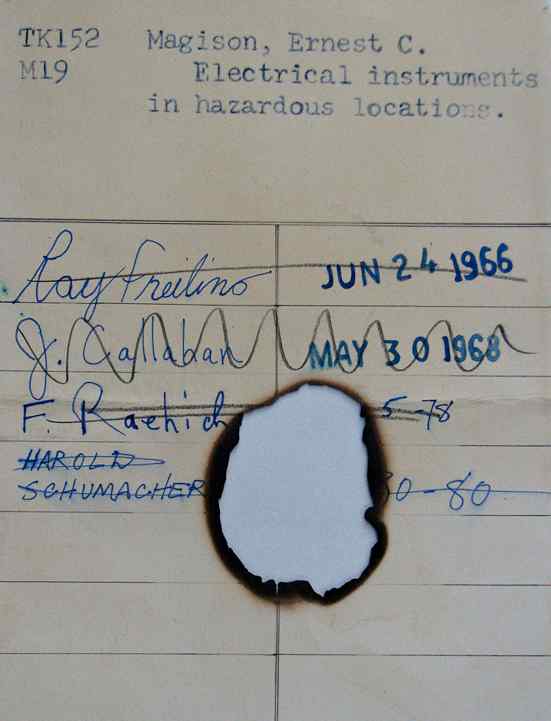 TK152 Magison, Ernest C.
M19 Electrical instruments
in hazardous locations.
Ray Freilino JUN 24 1966
J. Callahan MAY 30 1968
F. Raehich 5-78
HAROLD
SCHUMACHER 30-80